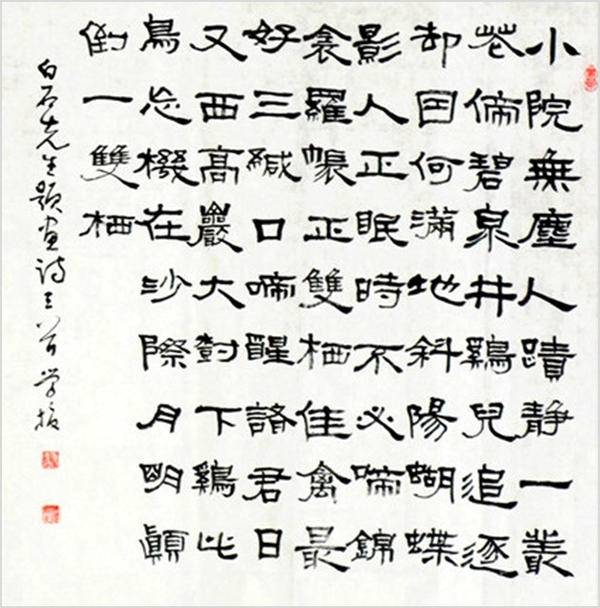 小院無塵人蹟静一叢
花傍碧泉井鷄兒追逐
却因何滿地斜陽蝴蝶
影人正眠時不必啼錦
衾羅帳正雙栖佳禽最
好三緘口啼醒諸君日
又西高巖大對下鷄比
鳥忘機在沙際月明顛
倒一雙栖
白石先生題畫詩三首 学振